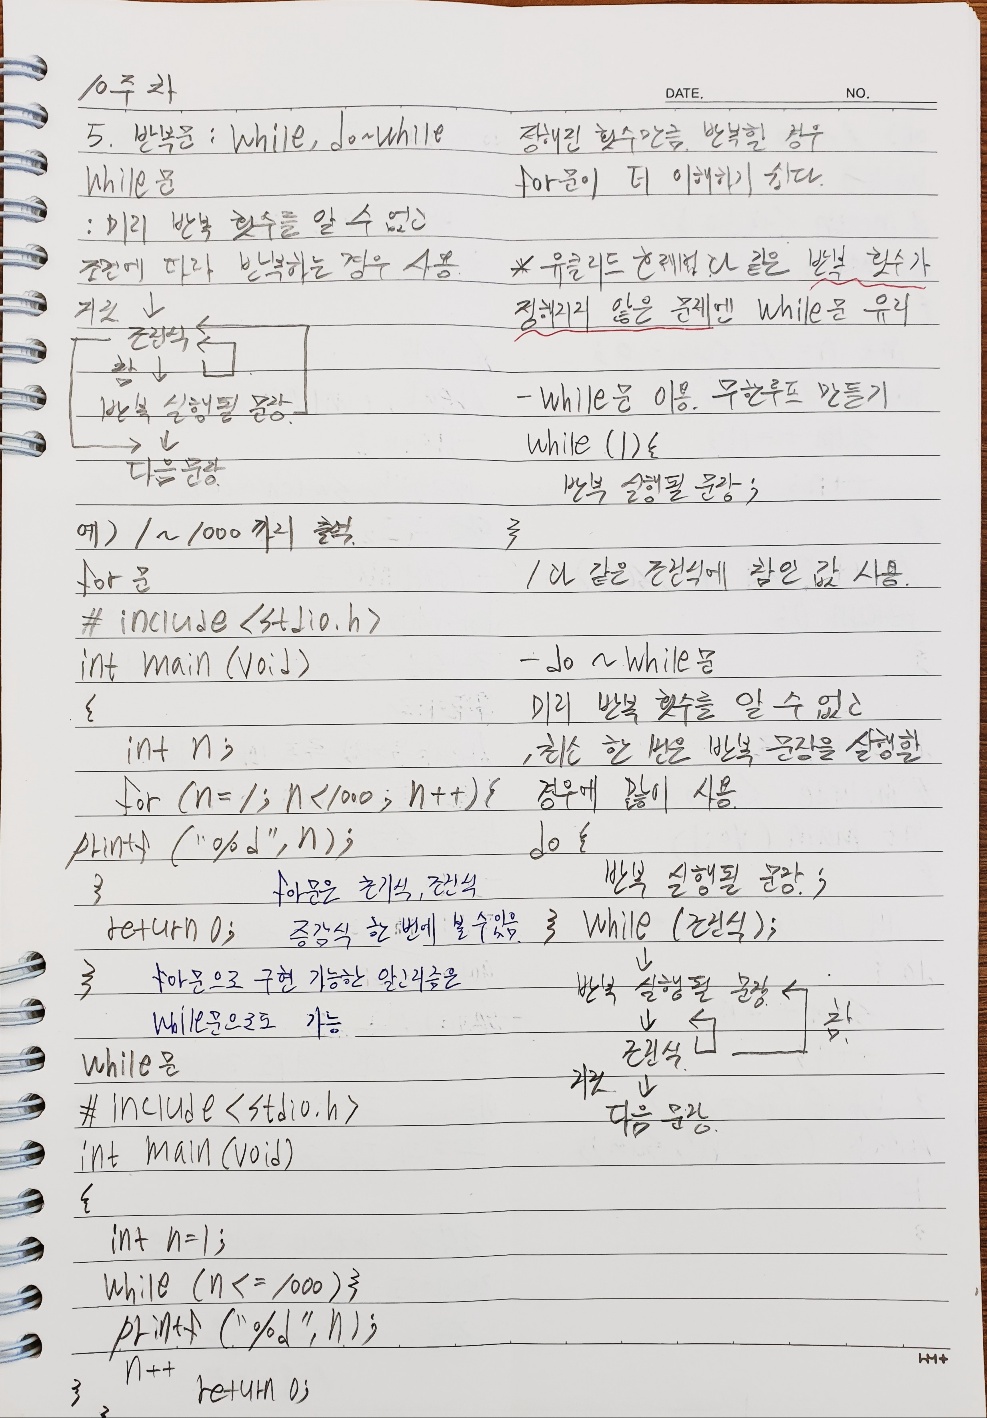 10주차
DATE.
NO.
5. 반복문 : while, do~while
while문
: 미리 반복 횟수를 알 수 없고
조건에 따라 반복하는 경우 사용
거짓 ↓
조건식
참 ↓
반복 실행될 문장
↓
다음문장
예) 1~1000까지 출력
for 문
# include <stdio.h>
int main (void)
{
int n;
for (n=1; n<1000; n++) {
printf ("%d", n);
}
for문은 초기식, 조건식
return 0;
증감식 한 번에 볼 수 있음
}
for문으로 구현 가능한 알고리즘은
while문으로도 가능
while문
# include <stdio.h>
int main (void)
{
int n=1;
while (n<=1000) }
printf ("%d", n);
n++
} return 0;
}
정해진 횟수만큼 반복할 경우
for문이 더 이해하기 쉽다.
* 유클리드 호제법과 같은 반복 횟수가
정해지지 않은 문제엔 while문 유리
- while문 이용. 무한루프 만들기
while (1) {
반복 실행될 문장;
}
1과 같은 조건식에 참인 값 사용.
- do ~ while문
미리 반복 횟수를 알 수 없고
, 최소 한 번은 반복 문장을 실행할
경우에 많이 사용
do {
반복 실행될 문장;
} while (조건식);
↓
반복 실행될 문장
↓
참
조건식
거짓 ↓
다음 문장